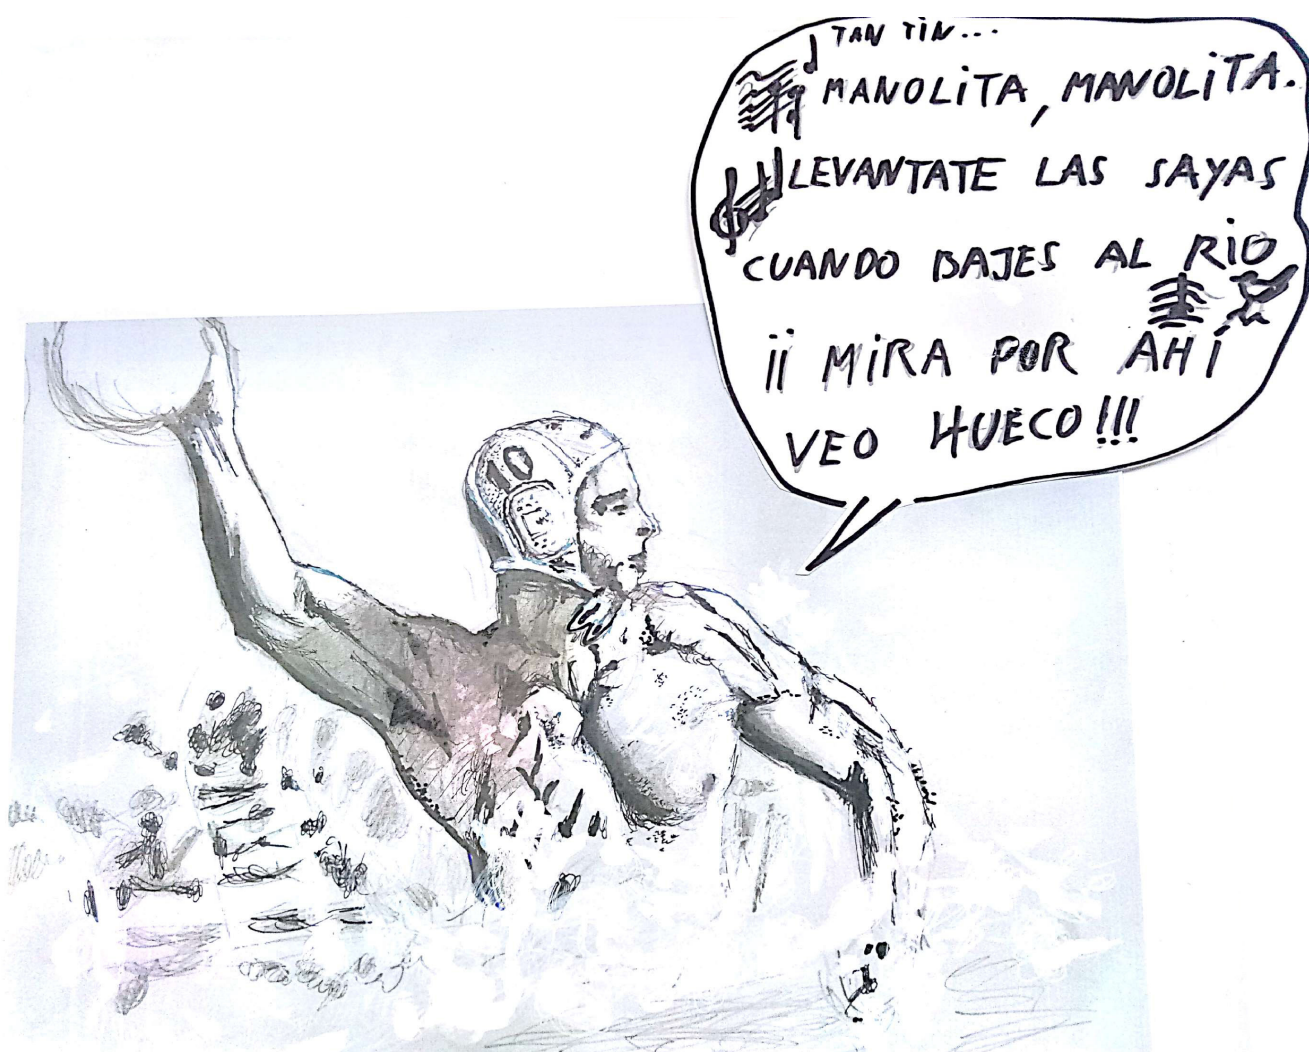 TAN TIN...
MANOLiTA, MANOLiTA.
LEVANTATE LAS SAYAS
CUANDO BAJES AL RiO
¡¡ MiRA POR AHÍ
VEO HUECO!!!
10